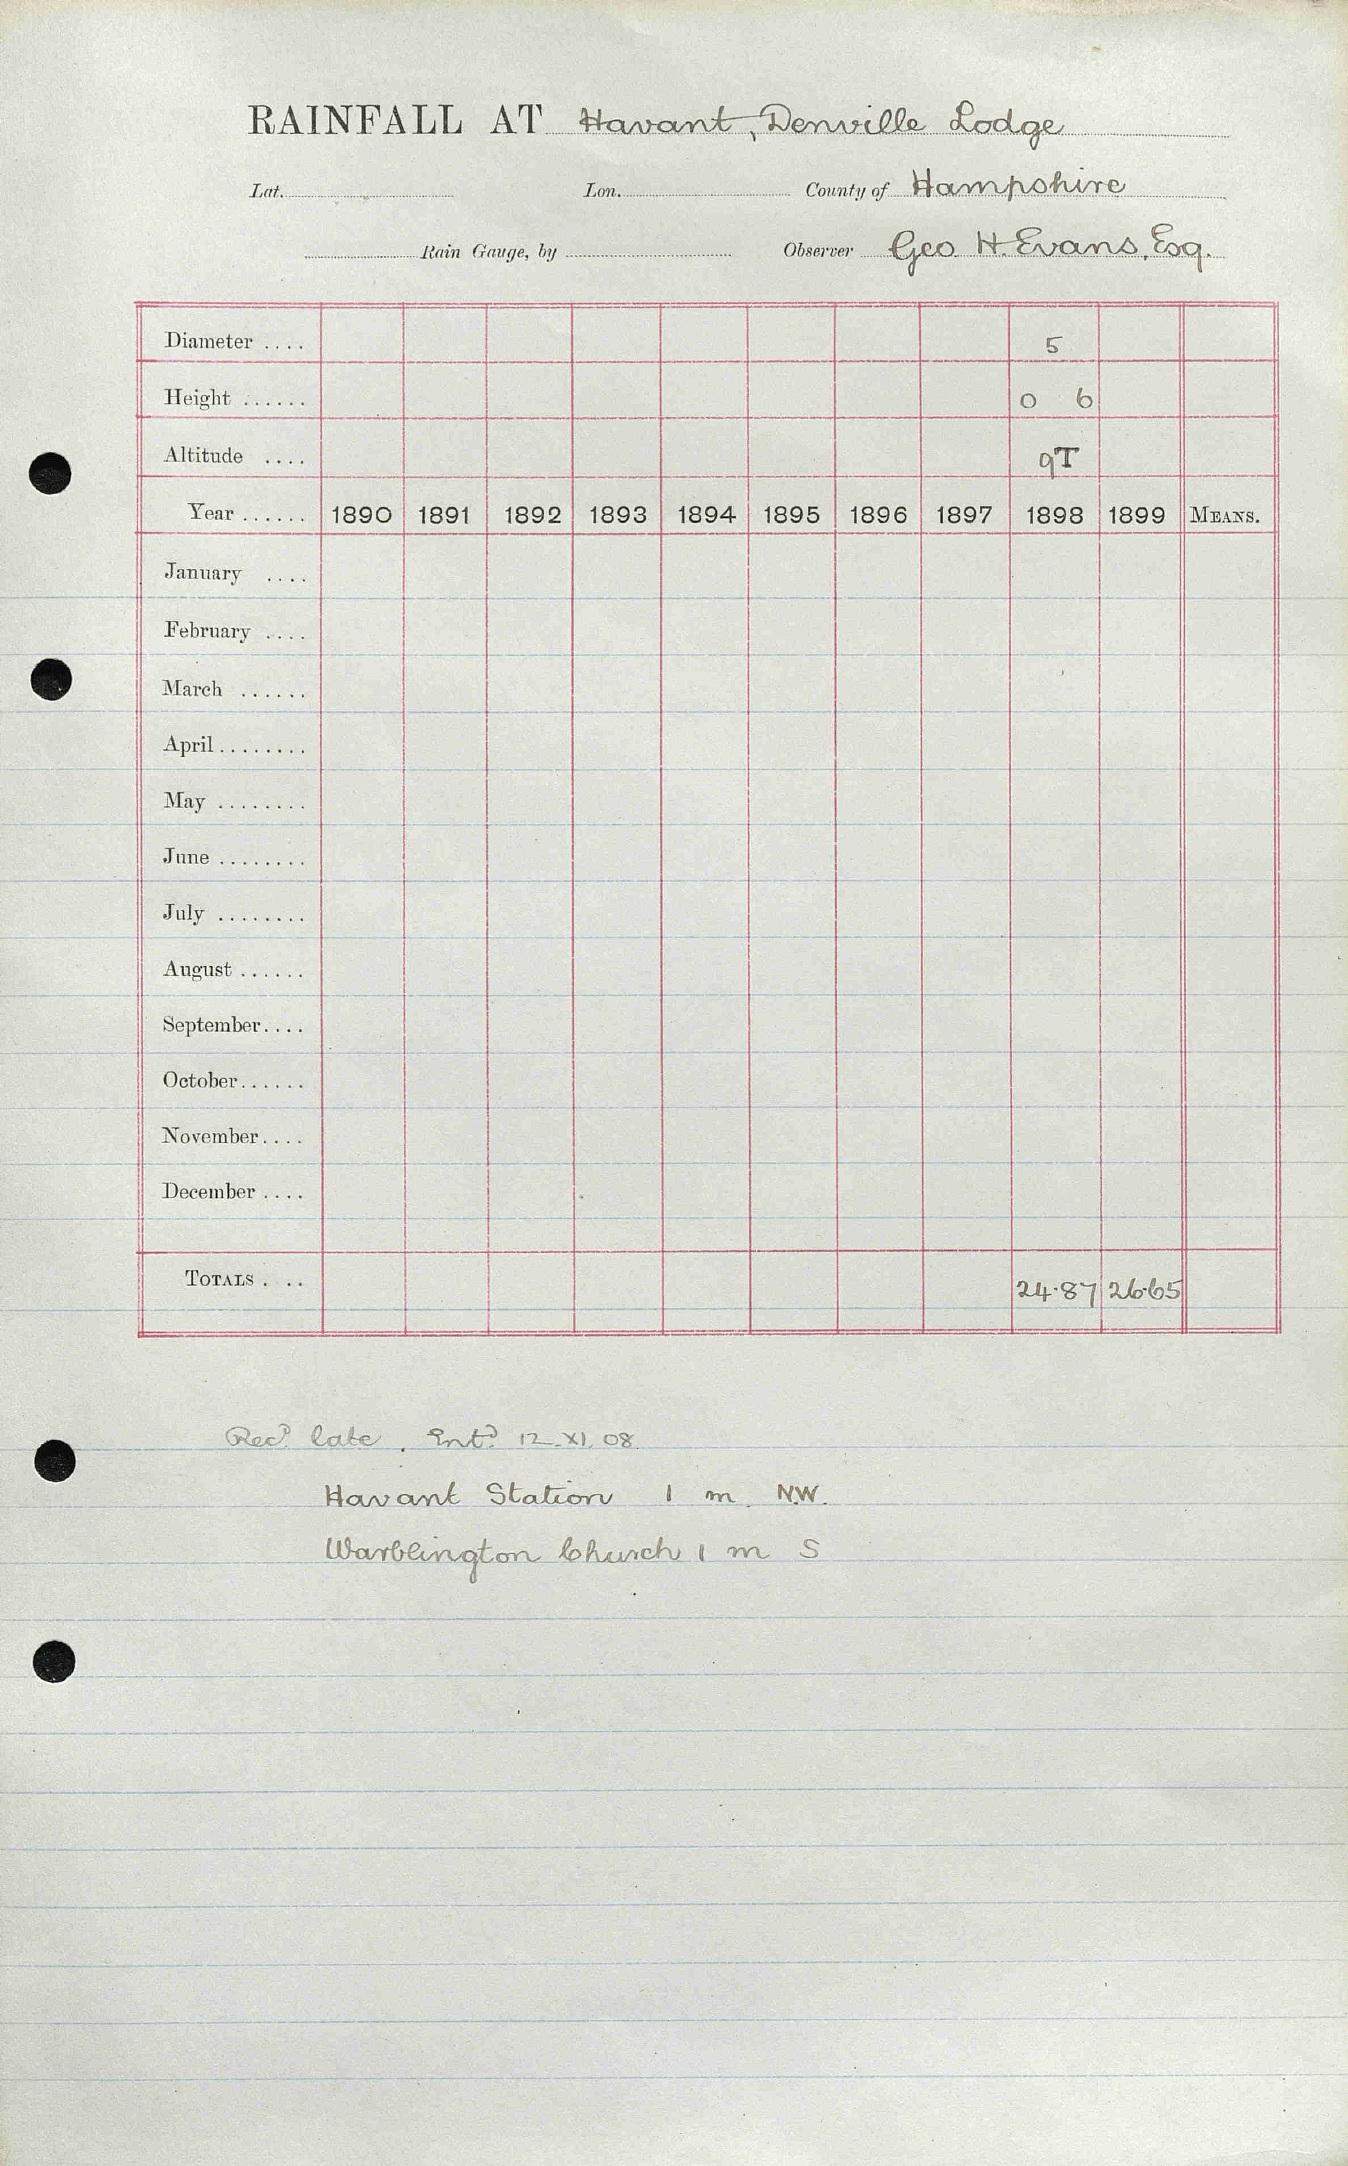 RAINFALL AT Havant, Denville Lodge
Lat. Lon. County of Hampshire
Rain Gauge, by Observer Geo H. Evans, Esq.
Diameter .... 5
Height ...... 0 6
Altitude .... 9T
Year ...... 1890 1891 1892 1893 1894 1895 1896 1897 1898 1899 MEANS.
January ....
February ....
March ......
April ........
May ........
June ........
July ........
August ......
September....
October......
November....
December ....
TOTALS . .. 24.87 26.65
Recd. late. Entd. 12.XI.08.
Havant Station 1 m. N.W.
Warblington Church 1 m S